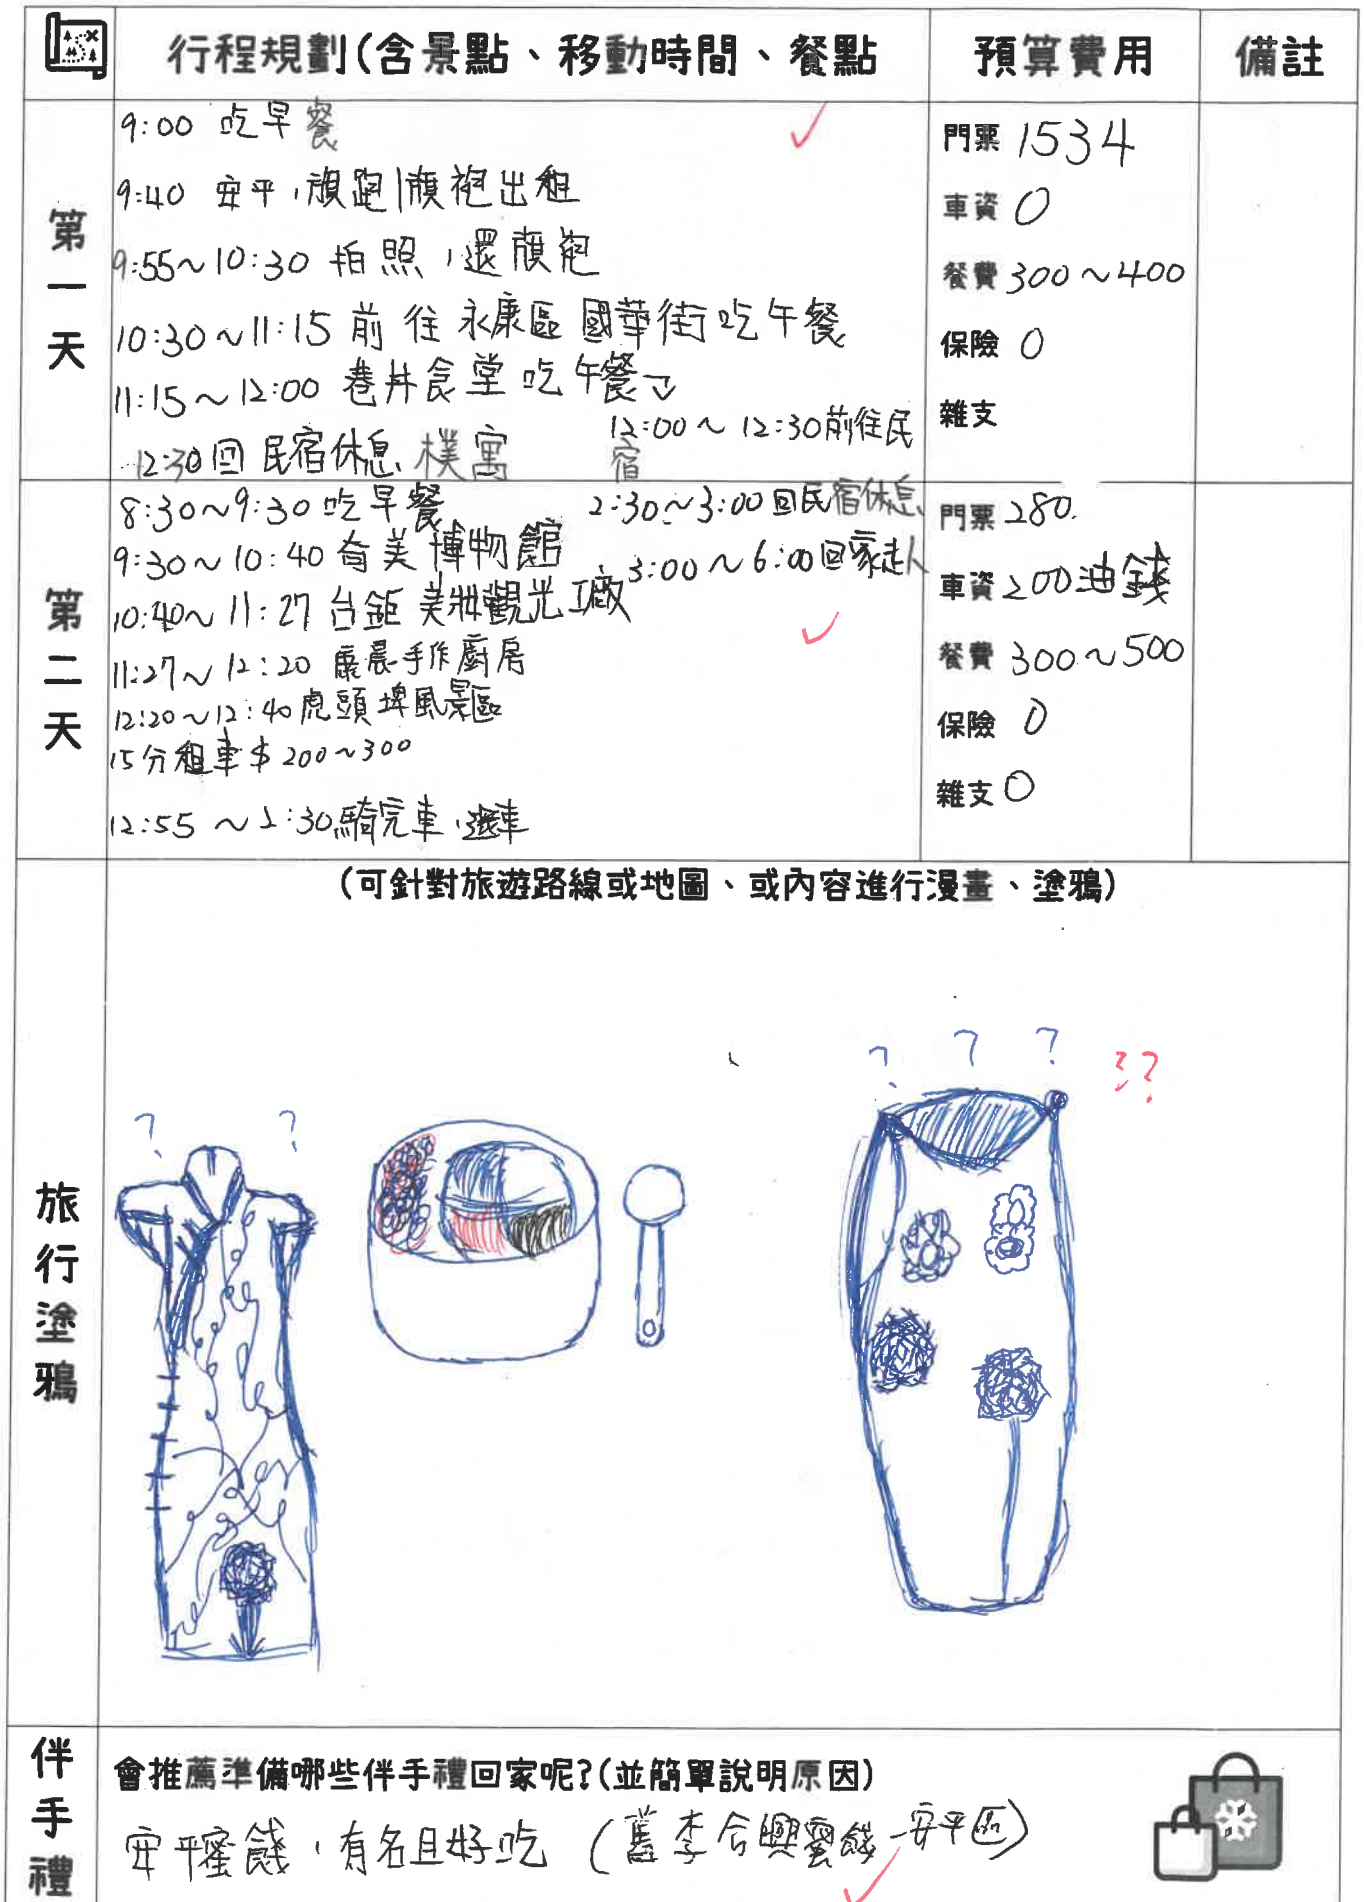 行程規劃(含景點、移動時間、餐點
預算費用
備註
第一天
9:00 吃早餐
9:40 安平,旗跑|旗袍出租
9:55~10:30 拍照,還旗袍
10:30~11:15 前往永康區國華街吃午餐
11:15~12:00 巷丼食堂吃午餐
12:00~12:30前往民宿
12:30回民宿休息 樸寓
門票 1534
車資 0
餐費 300~400
保險 0
雜支
第二天
8:30~9:30 吃早餐
9:30~10:40 奇美博物館
10:40~11:27 台鉅美妝觀光工廠
11:27~12:20 晨手作廚房
12:20~12:40 虎頭埤風景區
15分租車$200~300
12:55~2:30騎完車,還車
2:30~3:00回民宿休息
3:00~6:00回家
門票 280.
車資 200油錢
餐費 300~500
保險 0
雜支 0
(可針對旅遊路線或地圖、或內容進行漫畫、塗鴉)
旅行塗鴉
? ?
? ? ?
??
伴手禮
會推薦準備哪些伴手禮回家呢?(並簡單說明原因)
安平蜜餞,有名且好吃 (舊李合興蜜餞-安平區)